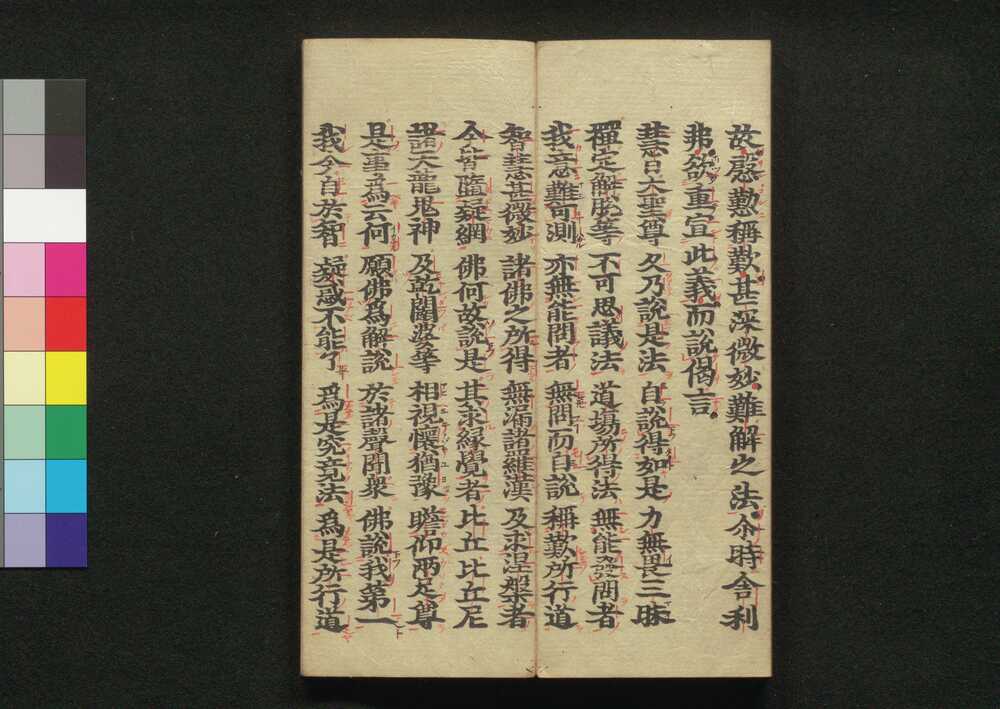 故慇懃稱歎甚深微妙難解之法尒時舎利
弗欲重宣此義而說偈言
慧日大聖尊 久乃說是法 自說得如是 力無畏三昧
禪定解脫等 不可思議法 道場所得法 無能發問者
我意難可測 亦無能問者 無問而自說 稱歎所行道
智慧甚微妙 諸佛之所得 無漏諸羅漢 及求涅槃者
今皆墮疑網 佛何故說是 其求縁覺者 比丘比丘尼
諸天龍鬼神 及乾闥婆等 相視懷猶豫 瞻仰兩足尊
是事為云何 願佛為解說 於諸聲聞衆 佛說我第一
我今自於智 疑惑不能了 為是究竟法 為是所行道